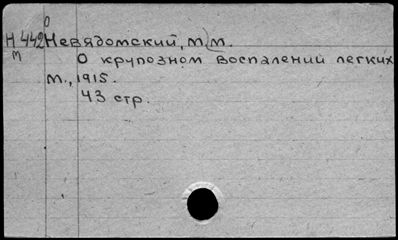 О
Н 442 Невядомский, М. М.
М
О крупозном воспалений легких
М., 1915.
43 стр.